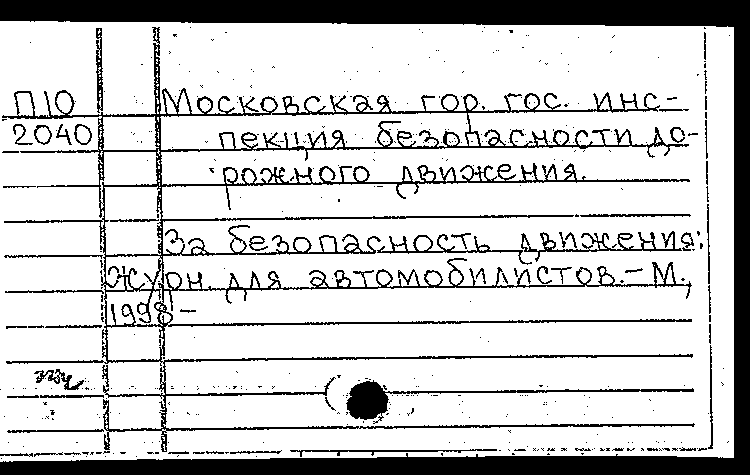 П10 Московская гор. гос. инс-
2040 пекция безопасности до-
рожного движения.
За безопасность движения:
журн. для автомобилистов.-М.,
1998-